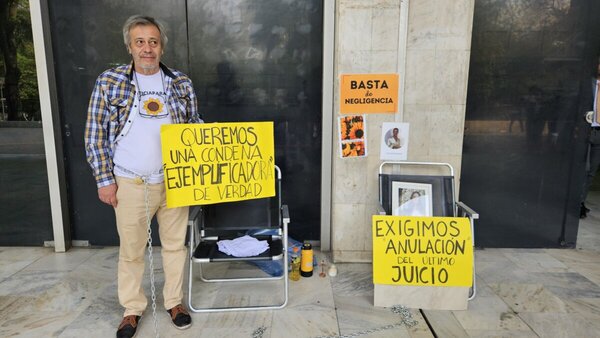 QUEREMOS
UNA CONDENA
"EJEMPLIFICADORA"
DE VERDAD
BASTA
de
NEGLIGENCIA
EXIGIMOS
"ANULACIÓN
DEL ÚLTIMO
JUICIO